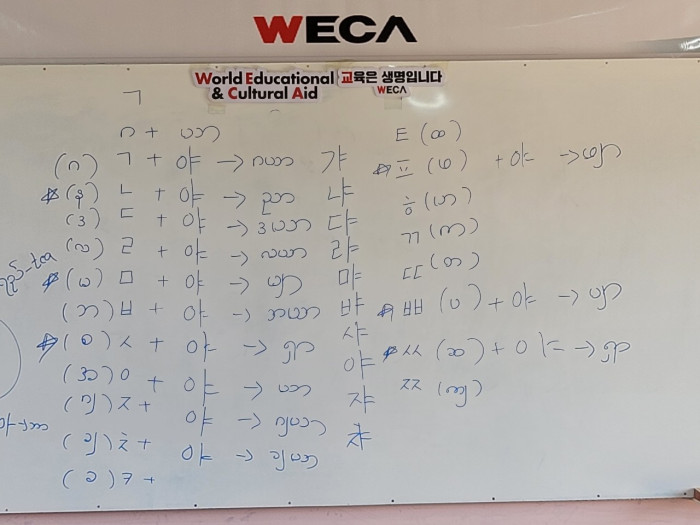 WECA
World Educational & Cultural Aid
교육은 생명입니다
WECA
ㄱ
ဂ + ယာ
(ဂ) ㄱ + 야 → ဂယာ 갸
☆ (န) ㄴ + 야 → 냐
(ဒ) ㄷ + 야 → ဒယာ 댜
(လ) ㄹ + 야 → လယာ 랴
☆ (မ) ㅁ + 야 → မျ 먀
(ဘ) ㅂ + 야 → ဘယာ 뱌
☆ ㅅ + 야 → 샤
(အ) ㅇ + 야 → ယာ 야
(ဂျ) ㅈ + 야 → ဂျယာ 쟈
(ချ) ㅊ + 야 → ချယာ 챠
(ခ) ㅋ +
ㅌ (ထ)
☆ ㅍ (ဖ) + 야 → ဖျ
ㅎ (ဟ)
ㄲ (က)
ㄸ (တ)
☆ ㅃ (ပ) + 야 → ပျ
☆ ㅆ (ဆ) + 야 →
ㅉ (ကျ)